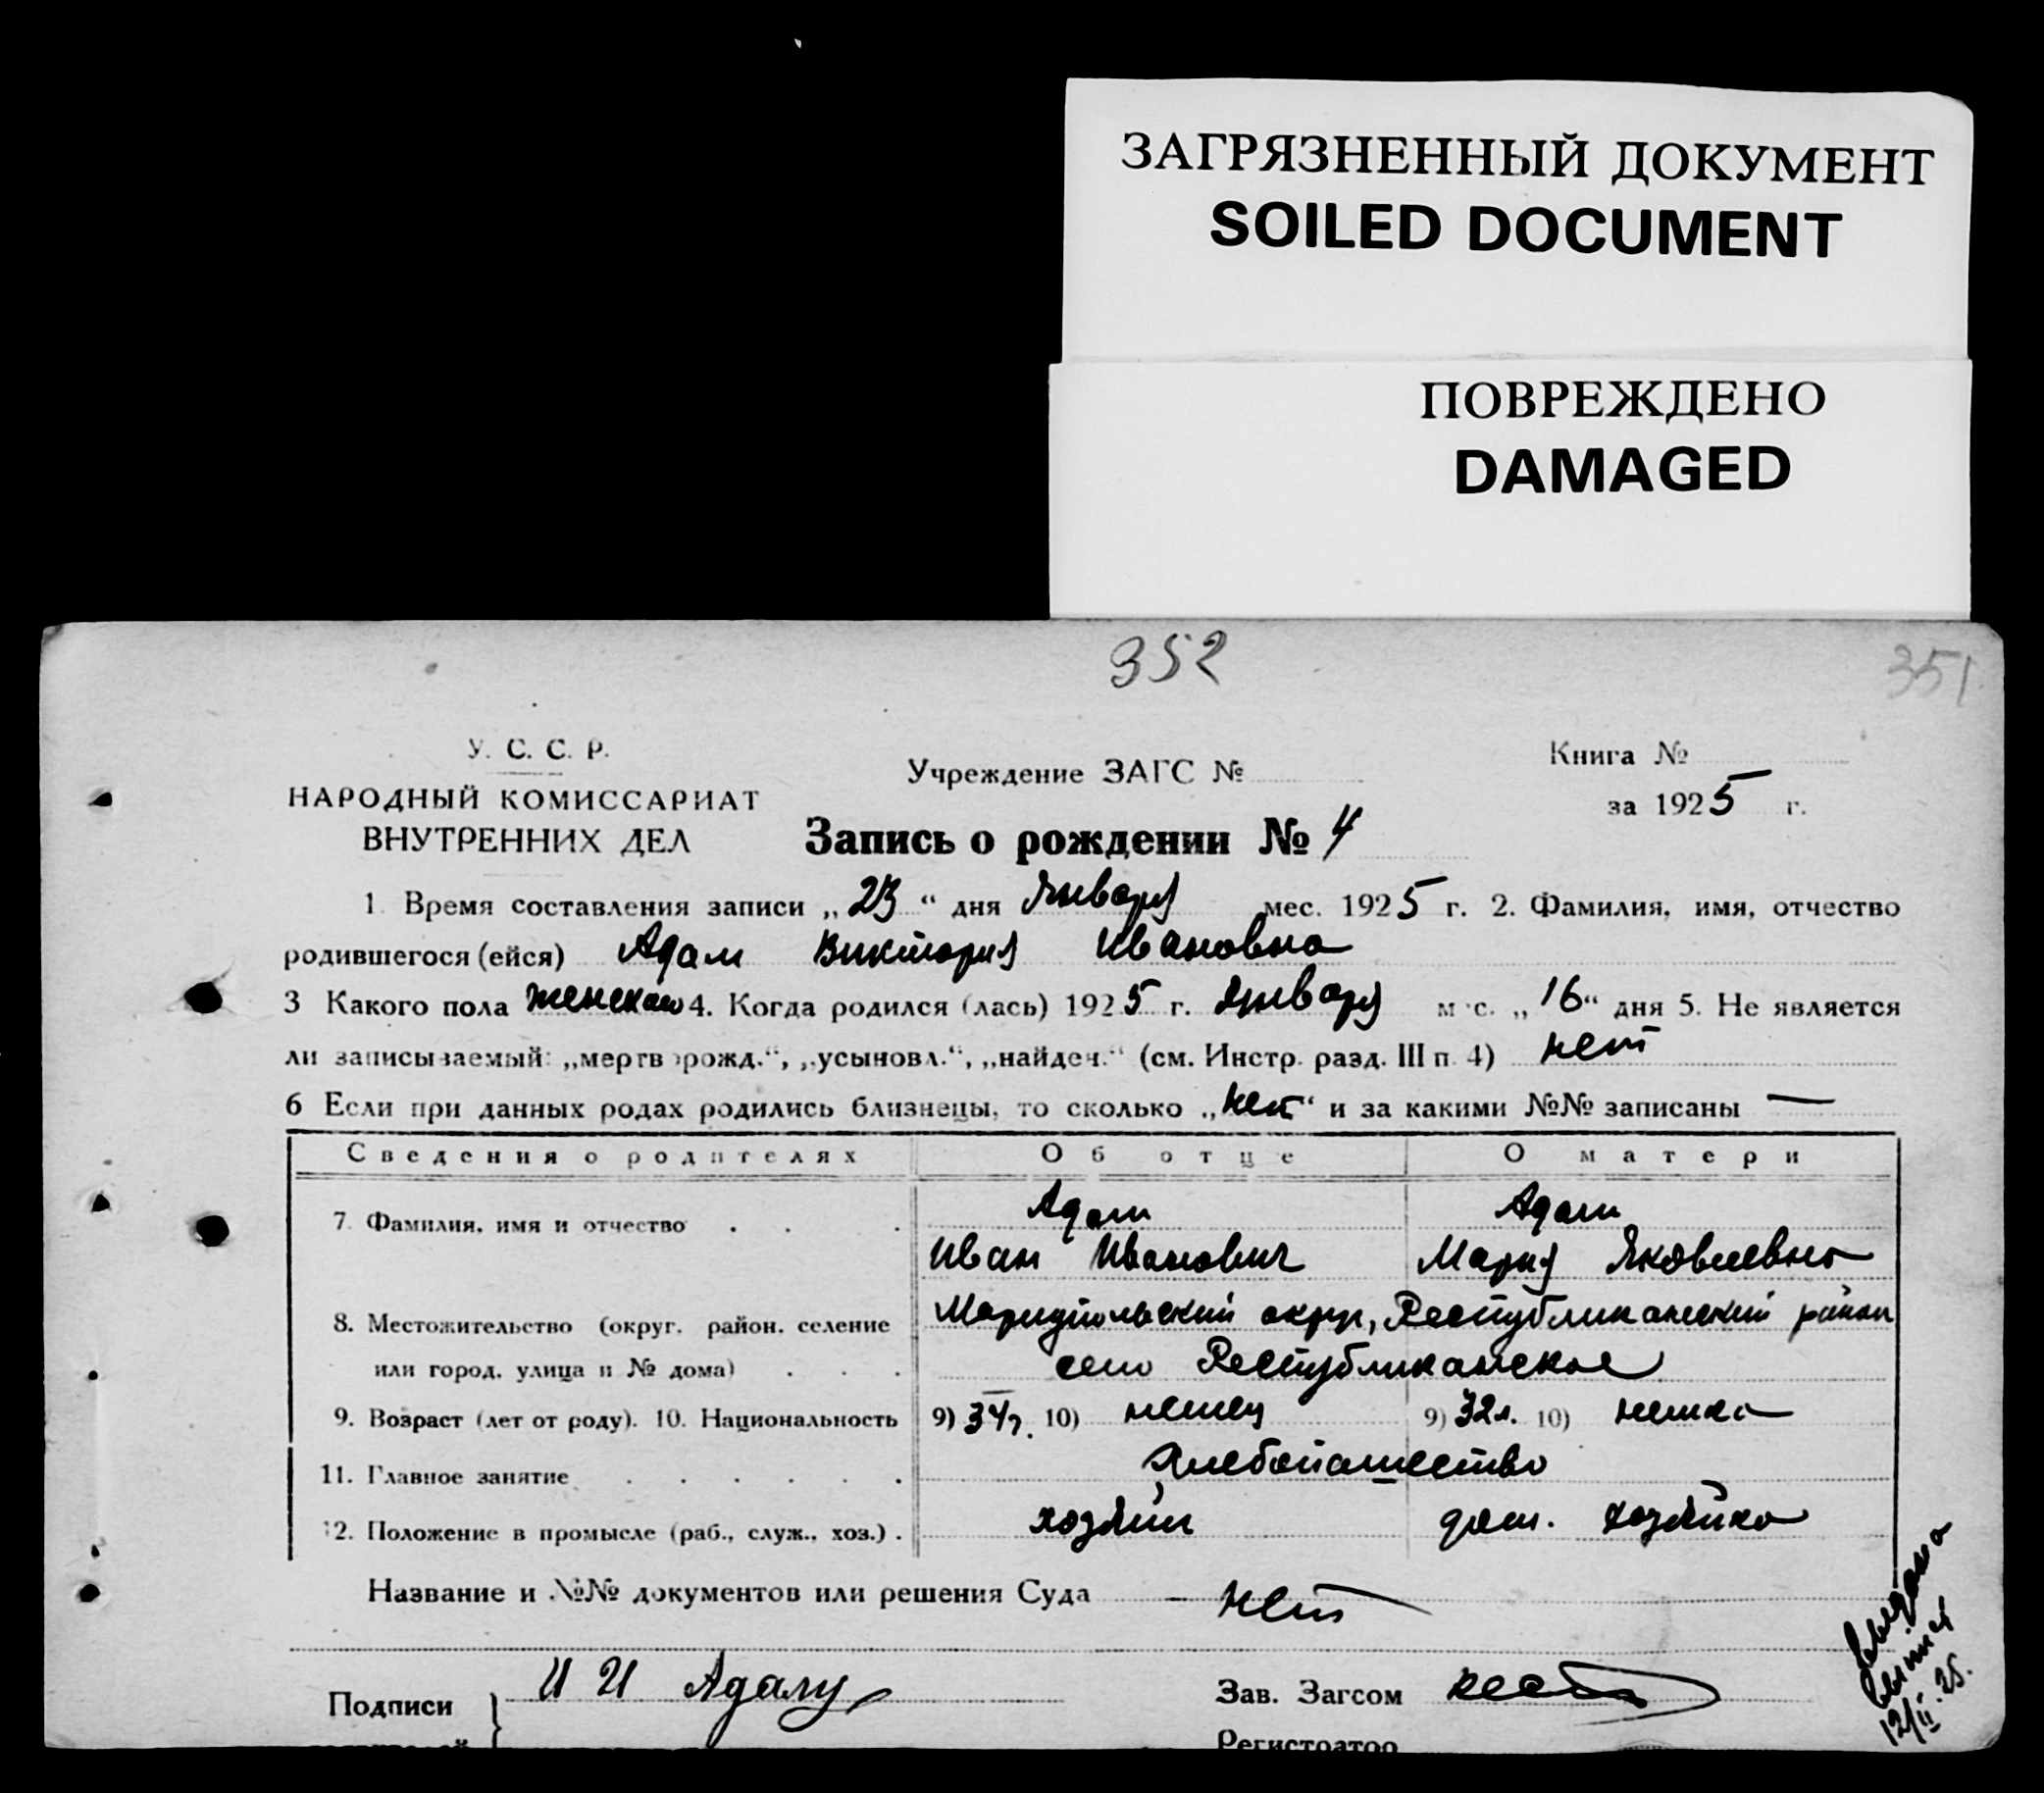 ЗАГРЯЗНЕННЫЙ ДОКУМЕНТ
SOILED DOCUMENT
ПОВРЕЖДЕНО
DAMAGED
352
351
У. С. С. Р.
НАРОДНЫЙ КОМИССАРИАТ
ВНУТРЕННИХ ДЕЛ
Учреждение ЗАГС №
Книга №
за 1925 г.
Запись о рождении № 4
1. Время составления записи „23“ дня Января мес. 1925 г. 2. Фамилия, имя, отчество
родившегося (ейся) Адам Виктория Ивановна
3 Какого пола женскаго 4. Когда родился (лась) 1925 г. Января мес. „16“ дня 5. Не является
ли записываемый: „мертворожд.“, „усыновл.“, „найден.“ (см. Инстр. разд. III п. 4) нет
6 Если при данных родах родились близнецы, то сколько „нет“ и за какими №№ записаны —
Сведения о родителях Об отце О матери
7. Фамилия, имя и отчество . . . Адам Адам
Иван Иванович Мария Яковлевна
8. Местожительство (округ, район, селение Мариупольский округ, Республиканский район
или город, улица и № дома) . . . село Республиканское
9. Возраст (лет от роду). 10. Национальность 9) 34г. 10) немец 9) 32л. 10) немка
11. Главное занятие . . . . . . Хлебопашество
12. Положение в промысле (раб., служ., хоз.) . хозяин дом. хозяйка
Название и №№ документов или решения Суда — нет
Подписи } И И Адам
Зав. Загсом
Регистратор
выпись
12/II.25.